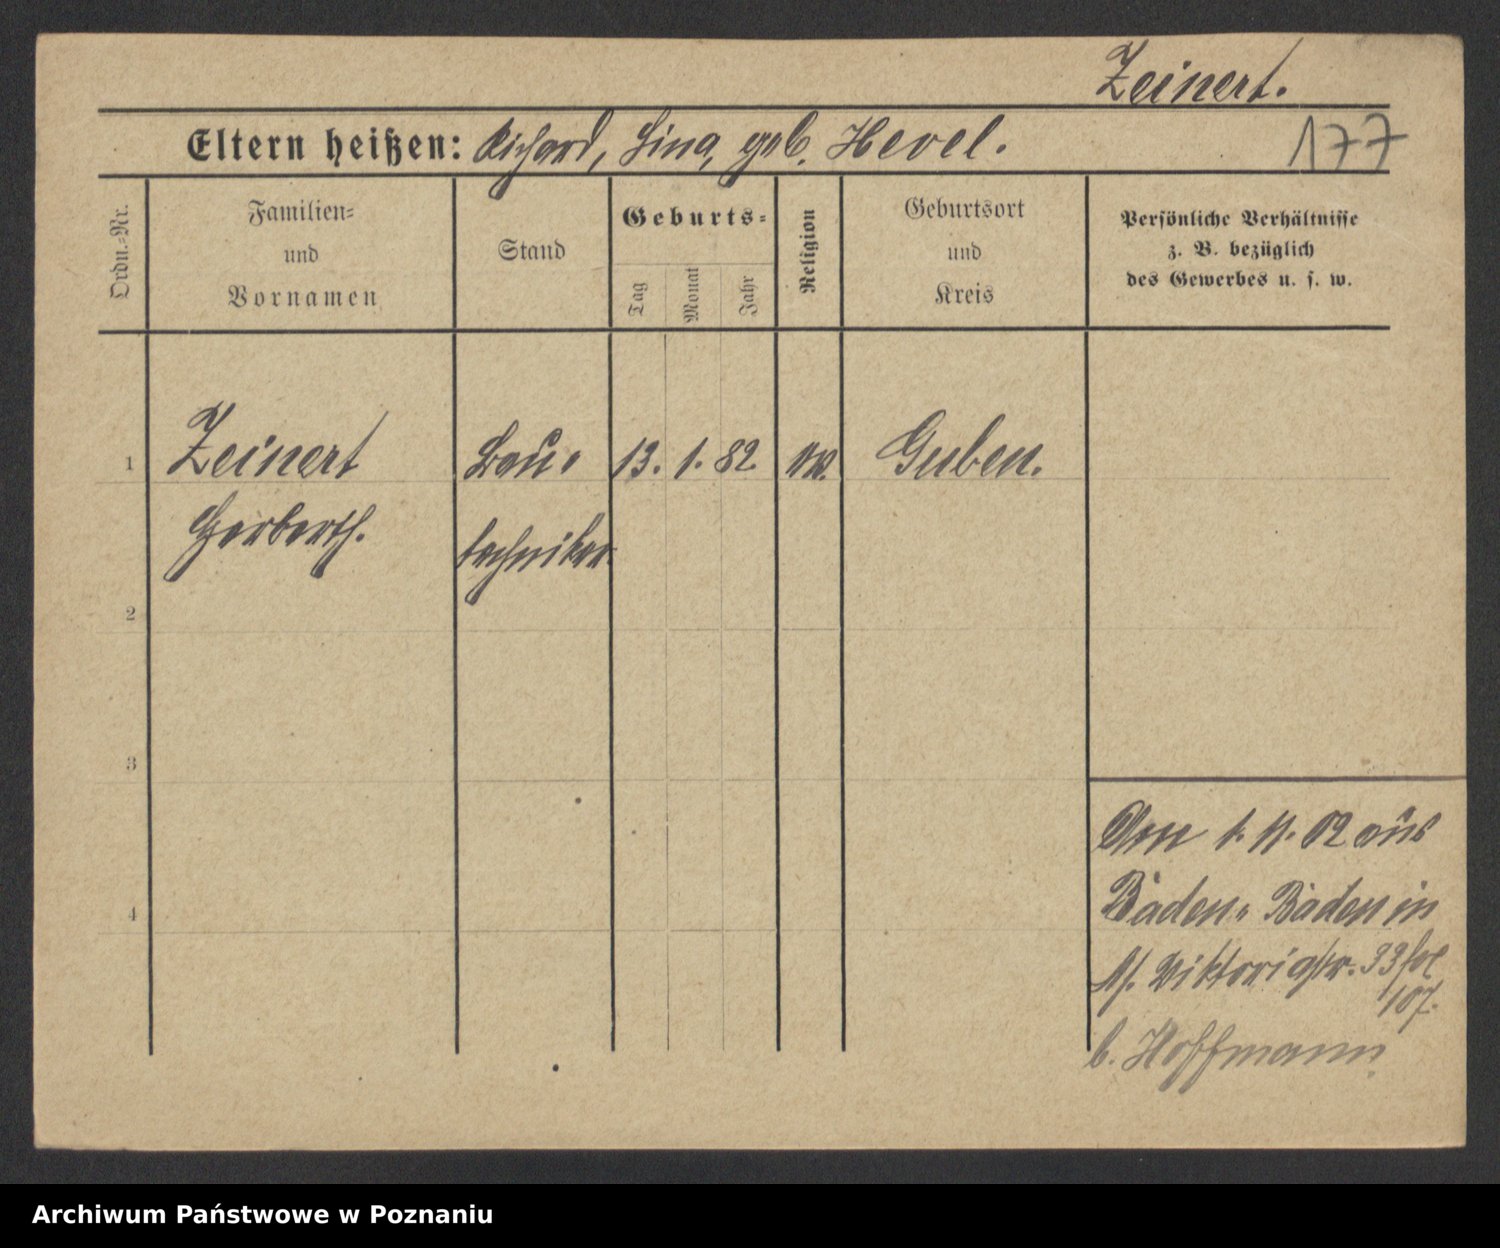 Zeinert.
Eltern heißen: Richard, Lina, geb. Hevel.
177
Ordn.-Nr.
Familien-
und
Vornamen
Stand
Geburts-
Tag
Monat
Jahr
Religion
Geburtsort
und
Kreis
Persönliche Verhältnisse
z. B. bezüglich
des Gewerbes u. s. w.
1
Zeinert
Bau-
13. 1. 82.
ev.
Guben.
Herberth.
techniker
2
3
4
Am 1. 11. 02 aus
Baden-Baden in
Viktoriastr. 33 fol
107.
b. Hoffmann
Archiwum Państwowe w Poznaniu